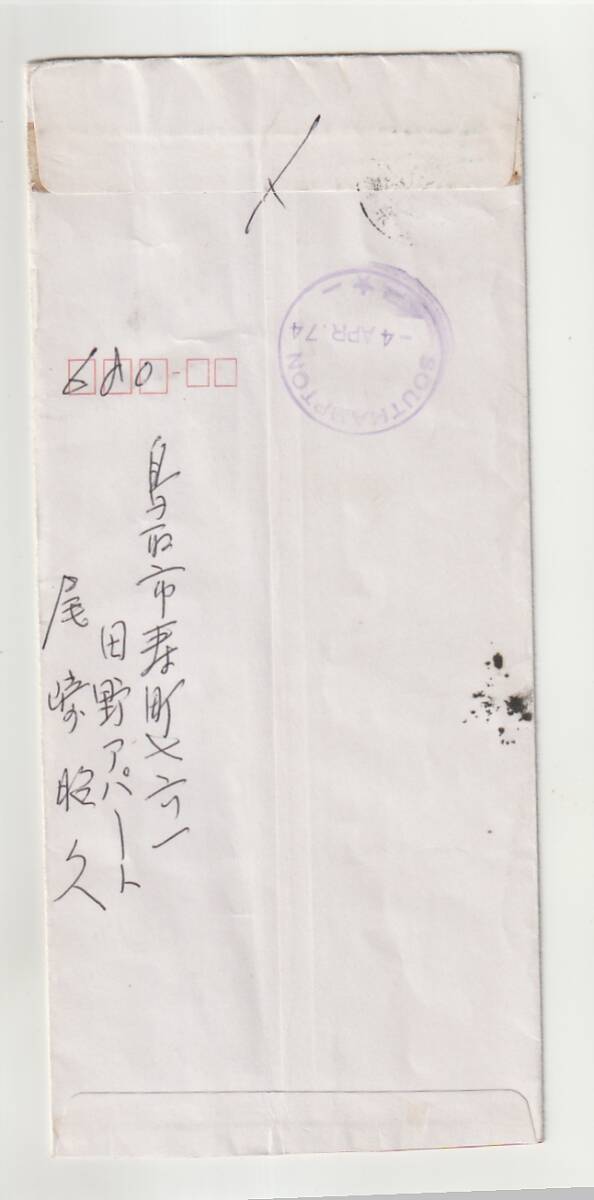 〆
SOUTHAMPTON
-4 APR.74
680
鳥取市寿町七六一
田野アパート
尾崎昭久